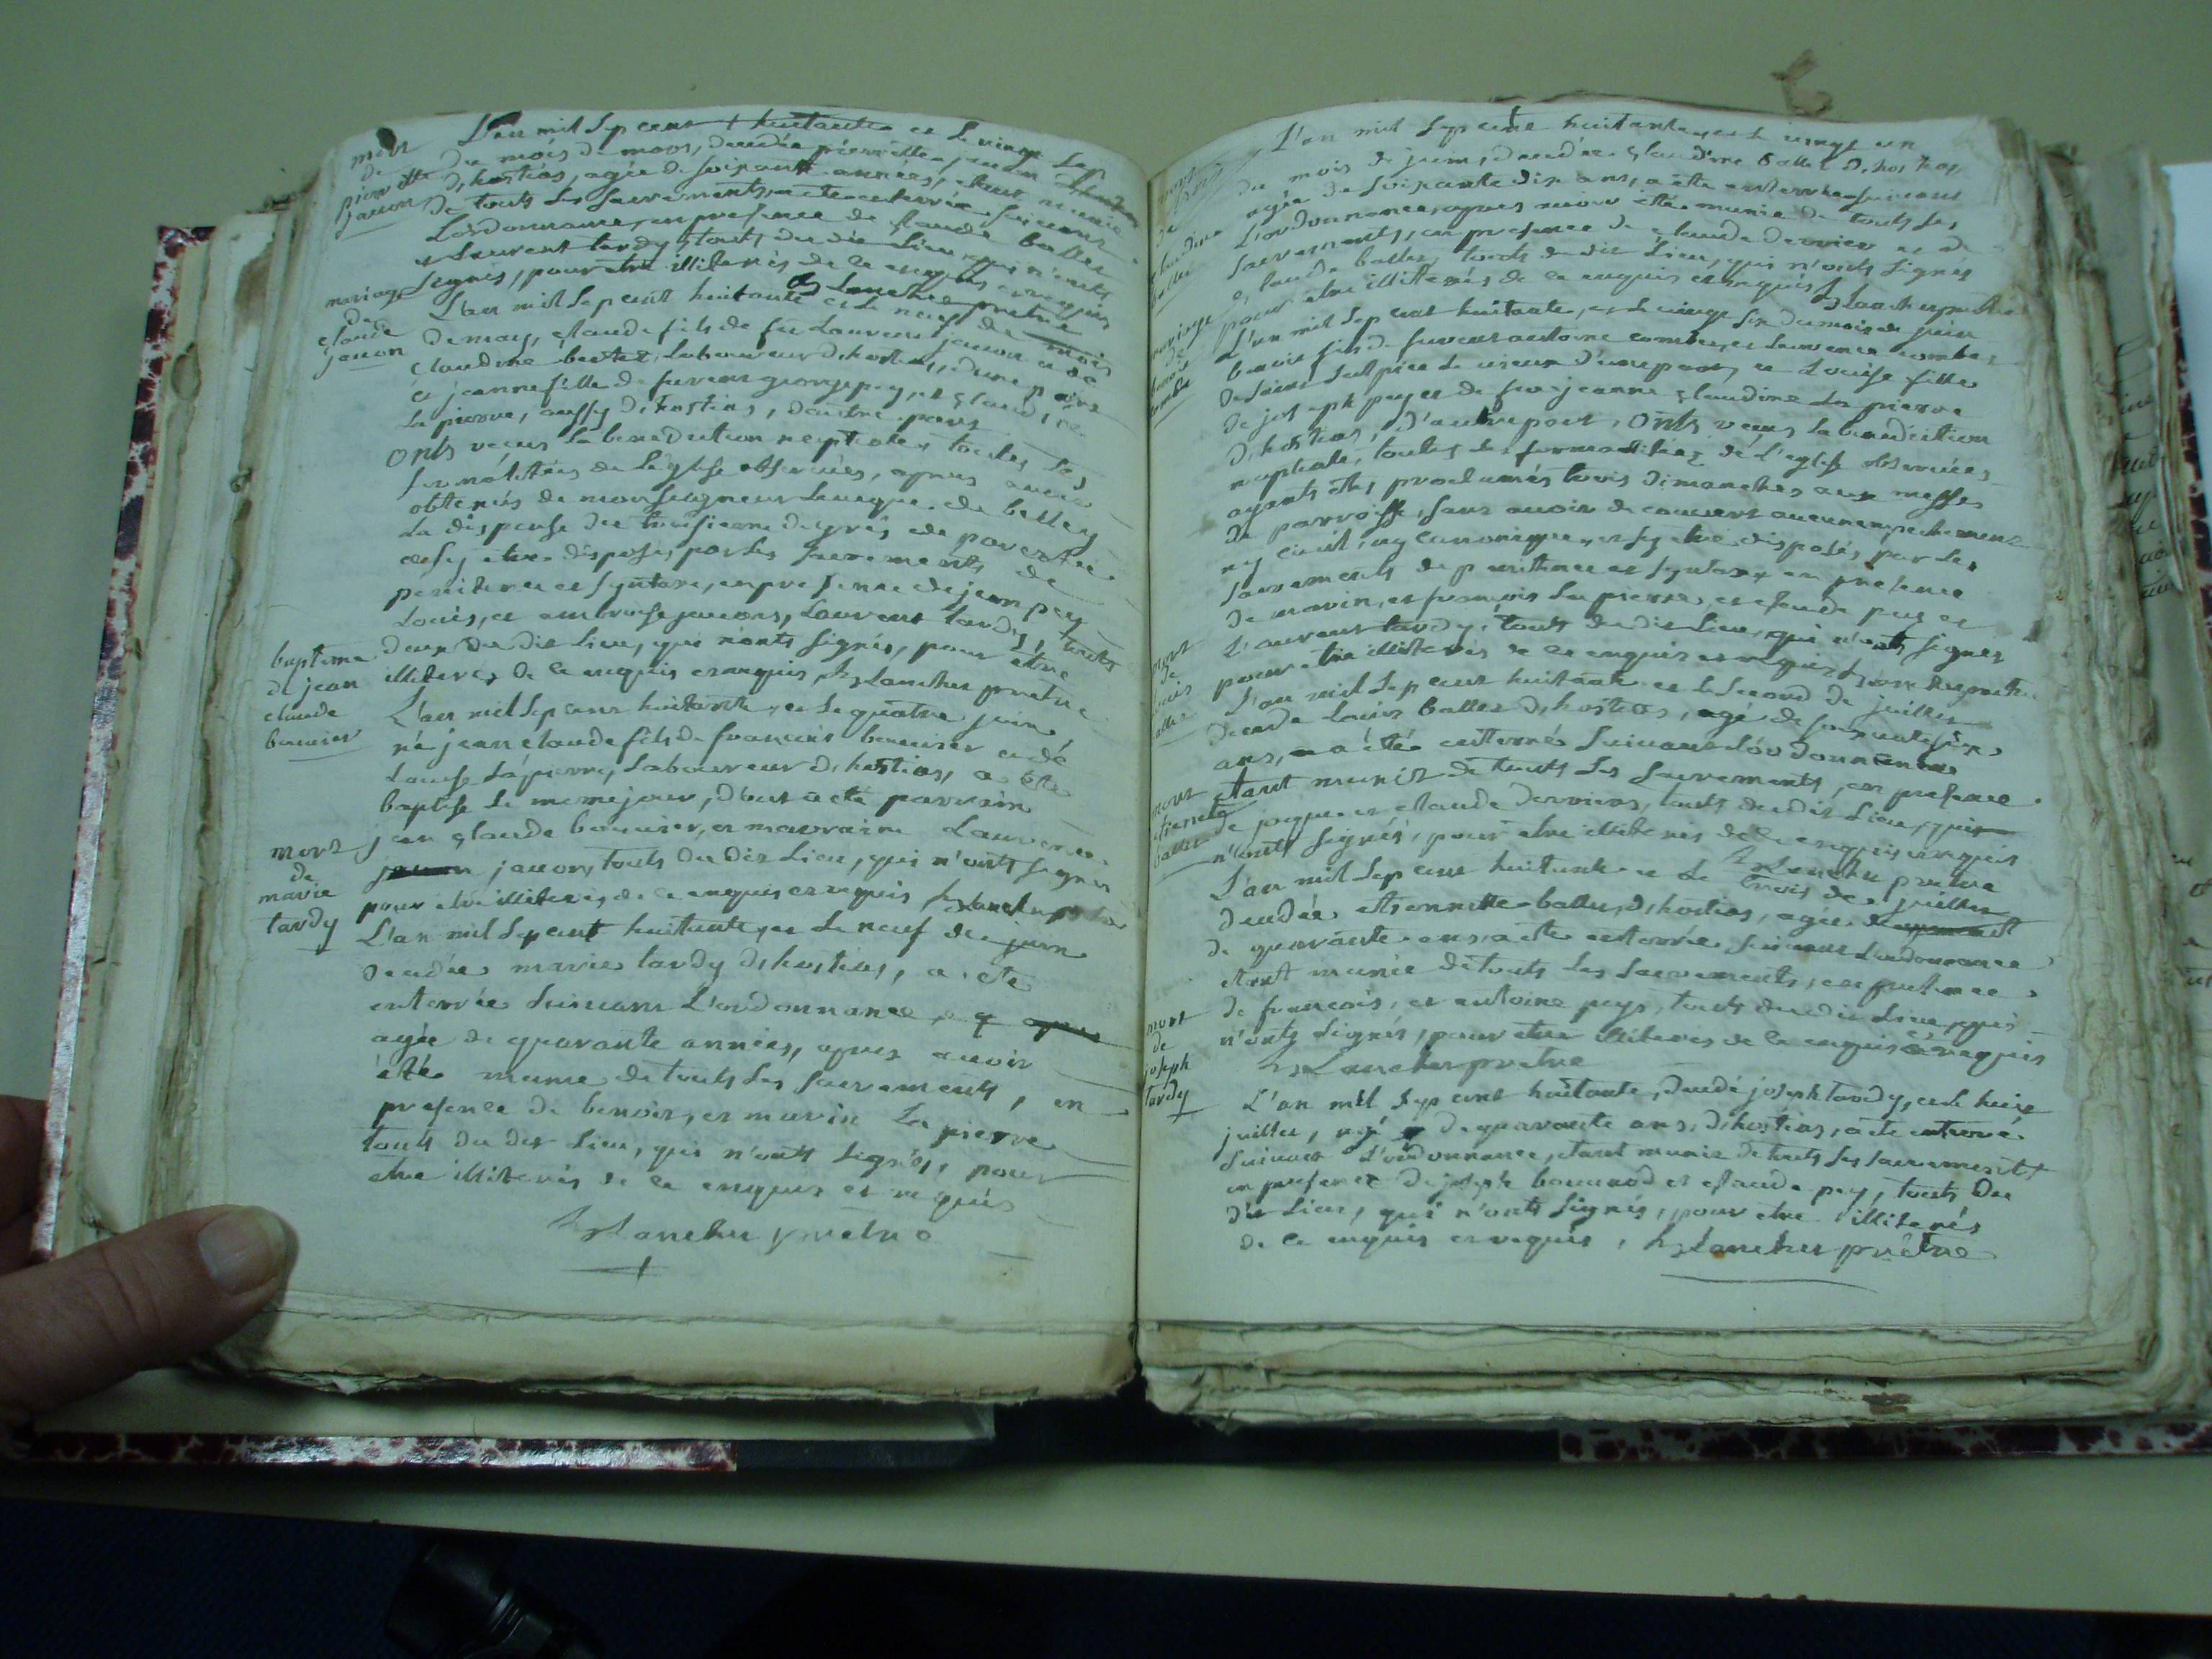 mort
de
pierrette
janon
L'an mil Sept cent huitante et le vingt Sept
du mois de mars, decedée pierrette janon
d'hostias, agée de soixante années, etant munie
de touts les sacrements, a ete enterrée suivant
L'ordonnance, en presence de claude ballet
et laurent tardy, touts du dit lieu, qui n'onts
signés, pour etre illiterés de ce enquis et requis
Blanchet prêtre
mariage
de
claude
janon
L'an mil Sept cent huitante et le neuf du mois
de may, claude fils de feu Laurent janon et de
claudine laboureur d'hostias, d'une part
et jeanne fille de fuvent george pey, et
La pierre, aussy d'hostias, d'autre part
onts reçus la benediction nuptiale, toutes les
formalitées de L'eglise observées, apres avoir
obtenûs de monseigneur Leveque de belley
La dispense du troisieme degrés de parentée
et s'y etre disposés par les sacrements de
penitence et synaxe, en presence de jean pey
Louis, et ambroise janons, Laurent tardy, touts
deux du dit lieu, qui n'onts signés, pour être
illiterés de ce enquis et requis Blanchet prêtre
bapteme
de jean
claude
bouvier
L'an mil Sept cent huitante, et le quatre juin,
né jean claude fils de francois bouvier et de
Louise Lapierre, laboureur d'hostias, a été
baptisé le meme jour, dont a eté parrain
jean claude bouvier, et marraine Laurence
janon, touts du dit lieu, qui n'onts signés
pour etre illiterés de ce enquis et requis Blanchet prêtre
mort
de
marie
tardy
L'an mil Sept cent huitante, et le neuf de juin
decedée marie tardy d'hostias, a ete
enterrée suivant L'ordonnance,
agée de quarante années, apres avoir
été munie de touts les sacrements, en
presence de benoit, et marin La pierre
touts du dit lieu, qui n'onts signés, pour
etre illiterés de ce enquis et requis
Blanchet prêtre
mort
de
claudine
ballet
L'an mil Sept cent huitante, et le vingt un
du mois de juin, decedée claudine ballet d'hostias,
agée de soixante dix ans, a été enterrée suivant
L'ordonnance, apres avoir été munie de touts les
sacrements, en presence de claude dernier et de
claude ballet, touts du dit lieu, qui n'onts signés
pour etre illiterés de ce enquis et requis Blanchet prêtre
mariage
de
benoit
combet
L'an mil Sept cent huitante, et le vingt six du mois de juin
benoit fils de fuvent antoine combet, et Laurence combet
de saint Sulpice le vieux d'une part, et Louise fille
de joseph pey et de feue jeanne claudine La pierre
d'hostias, d'autre part, onts reçus la benediction
nuptiale, toutes les formalitées de L'eglise observées
ayants étés proclamés trois dimanches aux messes
de parroisse, sans avoir decouvert aucun empechement
ny civil, ny canonique, et s'y etre disposés par les
sacrements de penitence et synaxe en presence
de marin, et francois La pierre, et claude pey et
Laurent tardy, touts du dit lieu, qui n'onts signés
pour etre illiterés de ce enquis et requis Blanchet prêtre
mort
de
Louis
ballet
L'an mil Sept cent huitante et le second de juillet
decedé Louis ballet d'hostias, agé de
ans, a été enterré suivant L'ordonnance
etant munis de touts les sacrements, en presence
de jaques et claude derniers, touts du dit lieu, qui
n'onts signés, pour etre illiterés de ce enquis et requis
Blanchet prêtre
mort
etiennette
ballet
L'an mil Sept cent huitante et le trois de juillet
decedée etiennette ballet, d'hostias, agée
de quarante ans, a été enterrée suivant L'ordonnance
etant munie de touts les sacrements, en presence
de francois, et antoine peys, touts du dit lieu, qui
n'onts signés, pour etre illiterés de ce enquis et requis
Blanchet prêtre
mort
de
joseph
tardy
L'an mil Sept cent huitante, decedé joseph tardy, et le huit
juillet, agé de quarante ans, d'hostias, a ete enterré
suivant L'ordonnance, etant munis de touts les sacrements
en presence de joseph bonnod et claude pey, touts du
dit lieu, qui n'onts signés, pour etre illiterés
de ce enquis et requis, Blanchet prêtre